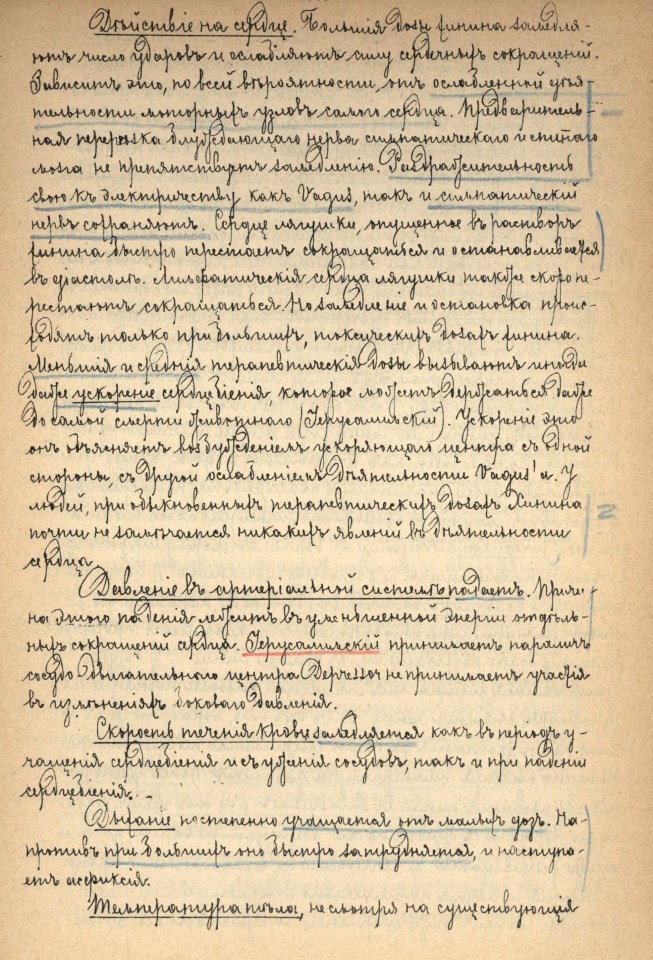 Дѣйствіе на сердце. Большія дозы хинина замедля-
ютъ число ударовъ и ослабляютъ силу сердечныхъ сокращеній.
Зависитъ это, по всей вѣроятности, отъ ослабленной дѣя-
тельности моторныхъ узловъ самого сердца. Предваритель-
ная перерѣзка блуждающаго нерва симпатическаго и спиннаго
мозга не препятствуетъ замедленію. Раздражительность
свою къ электричеству какъ Vagus, такъ и симпатическій
нервъ сохраняютъ. Сердце лягушки, опущенное въ растворъ
хинина быстро перестаетъ сокращаться и останавливается
въ діастолѣ. Лимфатическія сердца лягушки также скоро пе-
рестаютъ сокращаться. Но замедленіе и остановка проис-
ходятъ только при большихъ, токсическихъ дозахъ хинина.
Меньшія и среднія терапевтическія дозы вызываютъ иногда
даже ускореніе сердцебіенія, которое можетъ держаться даже
до самой смерти животнаго (Іерусалимскій). Ускореніе это
онъ объясняетъ возбужденіемъ ускоряющаго центра съ одной
стороны, съ другой ослабленіемъ дѣятельности Vagus'а. У
людей, при обыкновенныхъ терапевтическихъ дозахъ Хинина
почти не замѣчается никакихъ явленій въ дѣятельности
сердца.
Давленіе въ артеріальной системѣ падаетъ. Причи-
на этого паденія лежитъ въ уменьшенной энергіи отдѣль-
ныхъ сокращеній сердца. Іерусалимскій принимаетъ параличъ
сосудодвигательнаго центра Депрессоч не принимаетъ участія
въ измѣненіяхъ боковаго давленія.
Скорость теченія крови замедляется какъ въ періодъ у-
чащенія сердцебіенія и съуженія сосудовъ, такъ и при паденіи
сердцебіенія. -
Дыханіе постепенно учащается отъ малыхъ дозъ. На-
противъ при большихъ оно быстро затрудняется, и наступа-
етъ асфиксія.
Температура тѣла, не смотря на существующія